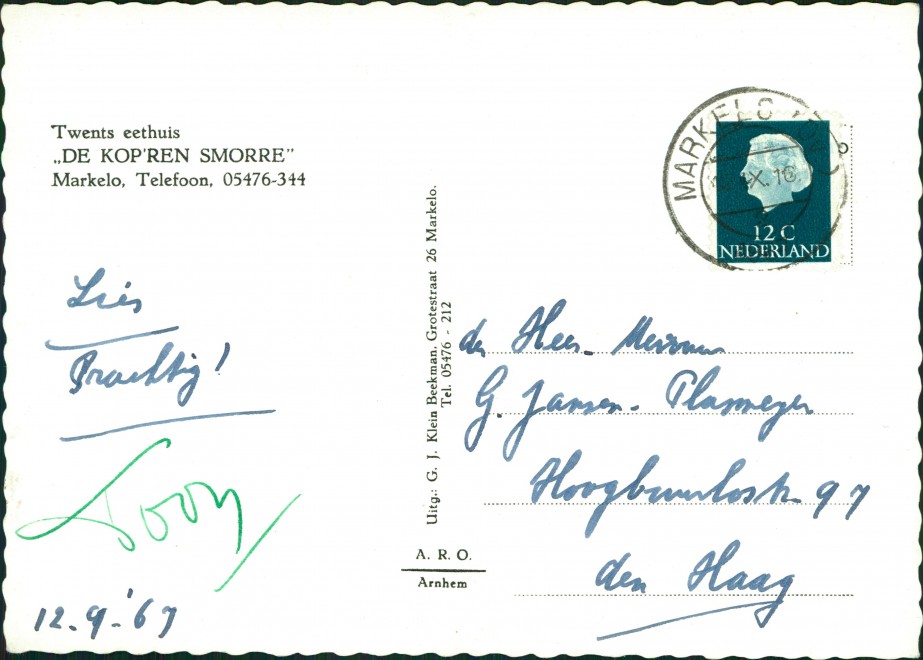 Twents eethuis
„DE KOP'REN SMORRE”
Markelo, Telefoon, 05476-344
Lies
Prachtig!
Toon
12.9.'67
Uitg.: G. J. Klein Beekman, Grotestraat 26 Markelo.
Tel. 05476 - 212
A. R. O.
Arnhem
MARKELO
12 C
NEDERLAND
de Heer - Mevrouw
G. Jansen - Plasmeyer
97
den Haag